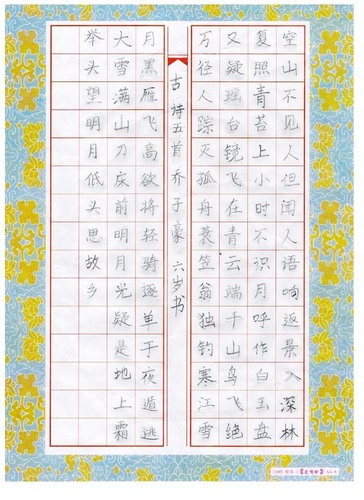 空山不见人但闻人语响返景入深林
复照青苔上小时不识月呼作白玉盘
又疑瑶台镜飞在青云端千山鸟飞绝
万径人踪灭孤舟蓑笠翁独钓寒江雪
古诗五首乔子豪 六岁书
月黑雁飞高欲将轻骑逐单于夜遁逃
大雪满山刀床前明月光疑是地上霜
举头望明月低头思故乡